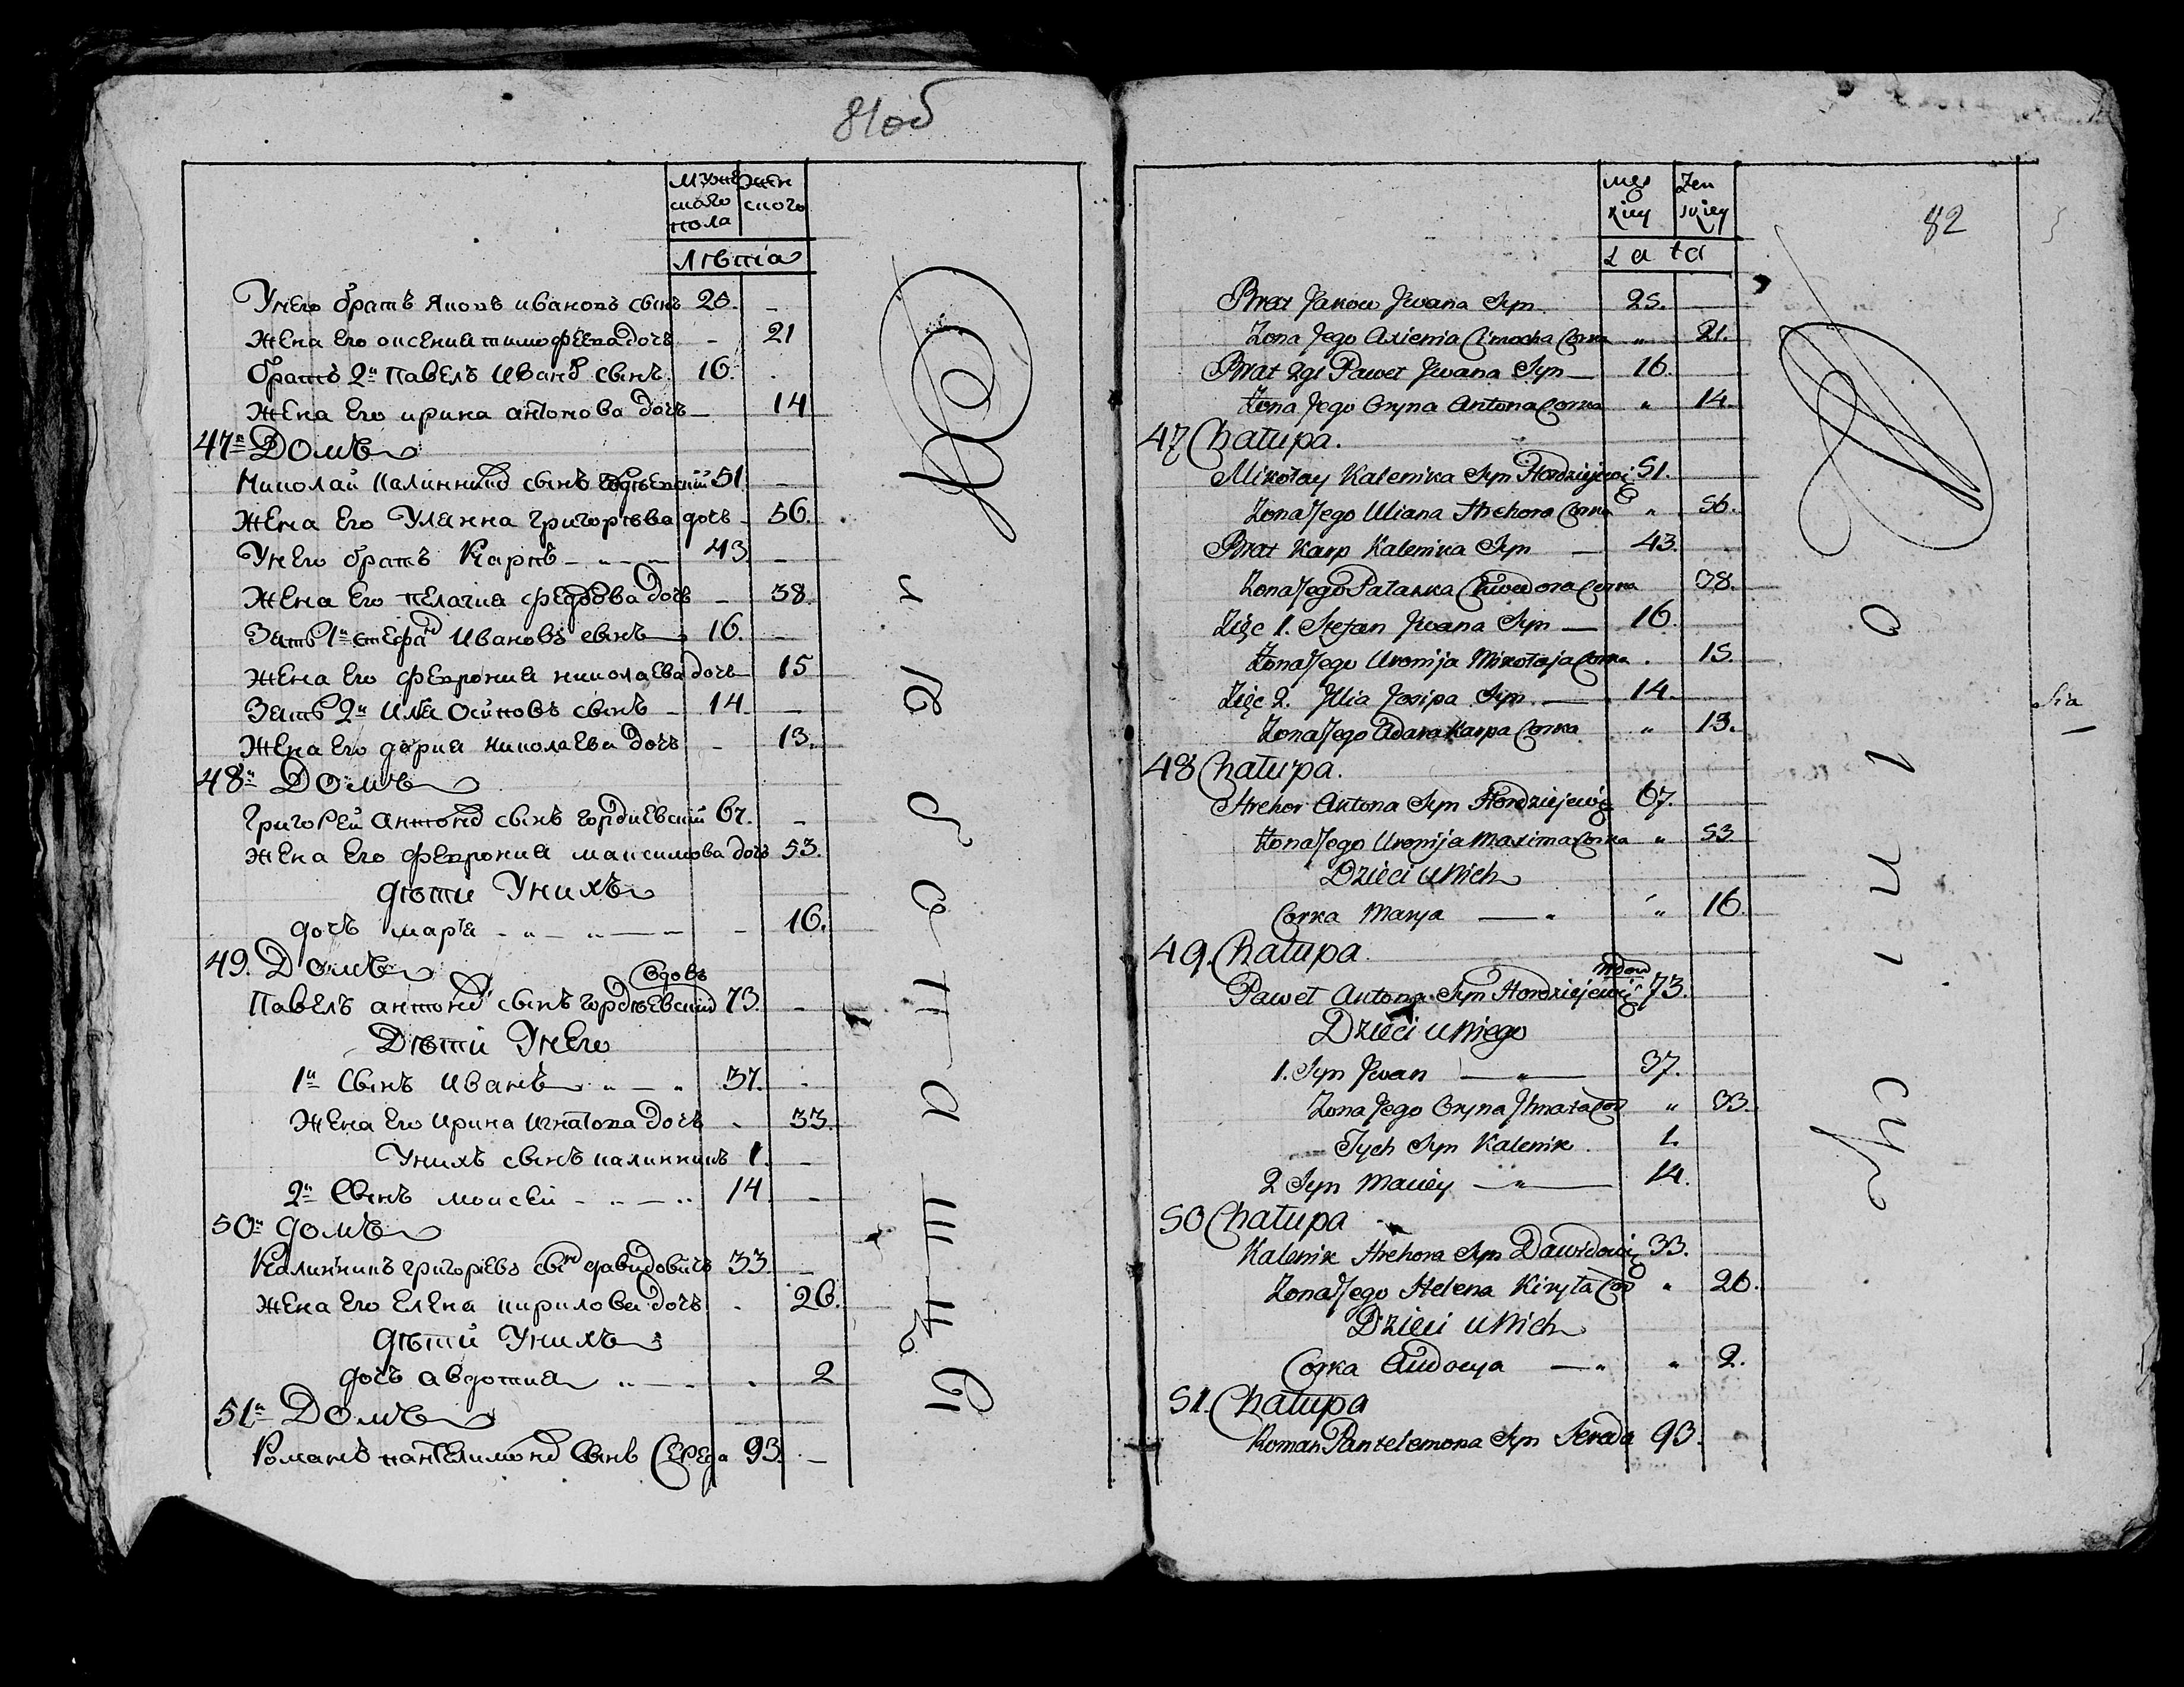 81об
мужескаго пола
женскаго
лѣта
Унего братъ Яковъ ивановъ сынъ 25. -
жена его оксения тимофѣева дочь - 21
братъ 2й павелъ Иванов сынъ. 16.
жена его ирина антонова дочь - 14
47й Домъ
Николай калинников сынъ гордѣевский 51. -
жена его Улянна григорѣва дочь - 56.
Унего братъ Карпъ - „ - 43. -
жена его пелагия федорова дочь - 38.
Зять 1й стефан Ивановъ сынъ 16. -
жена его феврония николаева дочь - 15
Зять 2й илѣя осиповъ сынъ - 14 -
жена его дария николаева дочь - 13.
48й Домъ
григорей антонов сынъ гордиевский 67. -
жена его феврония максимова дочь 53.
дѣти Унихъ
дочъ марѣя - „ - „ - - 16.
49. Домъ
вдовъ
Павелъ антонов сынъ гордѣевский 73. -
Дѣти Унего
1й Сынъ иванъ „ - „ 37. -
жена его ирина игнатова дочь - 33.
Унихъ сынъ калинникъ 1. -
2й Сынъ моисей - „ - „ 14 -
50й домъ
Калинникъ григорѣвъ сынъ давидовичъ 33. -
жена его елена кирилова дочь - 26.
дѣти Унихъ
дочъ авдотия „ - „ - 2
51й Домъ
Романъ пантелимонов Сынъ Середа 93. -
82
męs kiey
Żen skiey
Lata
Brat Jakow Jwana Syn 25. -
Zona Jego Axienia Cimocha Corka „ 21.
Brat 2gi Paweł Jwana Syn — 16.
Zona Jego Oryna Antona Corka „ 14.
47 Chałupa.
Mikołay Kalenika Syn Hordziejewicz 51.
Zona Jego Uliana Hrehora Corka „ 56.
Brat Karp Kalenika Syn — 43.
Zona Jego Pałaxka Chwedora Corka 38.
Zięć 1. Stefan Jwana Syn — 16.
Zona Jego Uronija Mikołaja Corka . 15.
Zięć 2. Jllia Josipa Syn — 14.
Zona Jego Adarka Karpa Corka „ 13.
48 Chałupa.
Hrehor Antona Syn Hordziejewicz 67.
Zona Jego Uronija Maxima Corka „ 53.
Dzieci u Nich
Corka Marya — „ „ 16.
49. Chałupa.
wdow
Paweł Antona Syn Hordziejewicz 73.
Dzieci u Niego
1. Syn Jwan — „ — 37.
Zona Jego Oryna Jhnata Cor „ 33.
Tych Syn Kalenik 1.
2 Syn Maciey — „ — 14.
50 Chałupa
Kalenik Hrehora Syn Dawidowicz 33.
Zona Jego Helena Kiryła Cor „ 26.
Dzieci u Nich
Corka Audocya — „ „ 2.
51. Chałupa
Roman Pantelemona Syn Sereda 93.